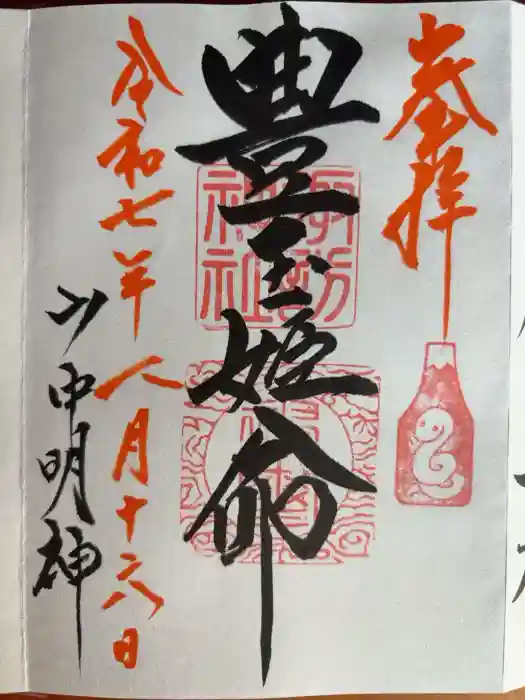 奉拝
豊玉姫命
令和七年 八月十六日
山中明神
諏訪
神社